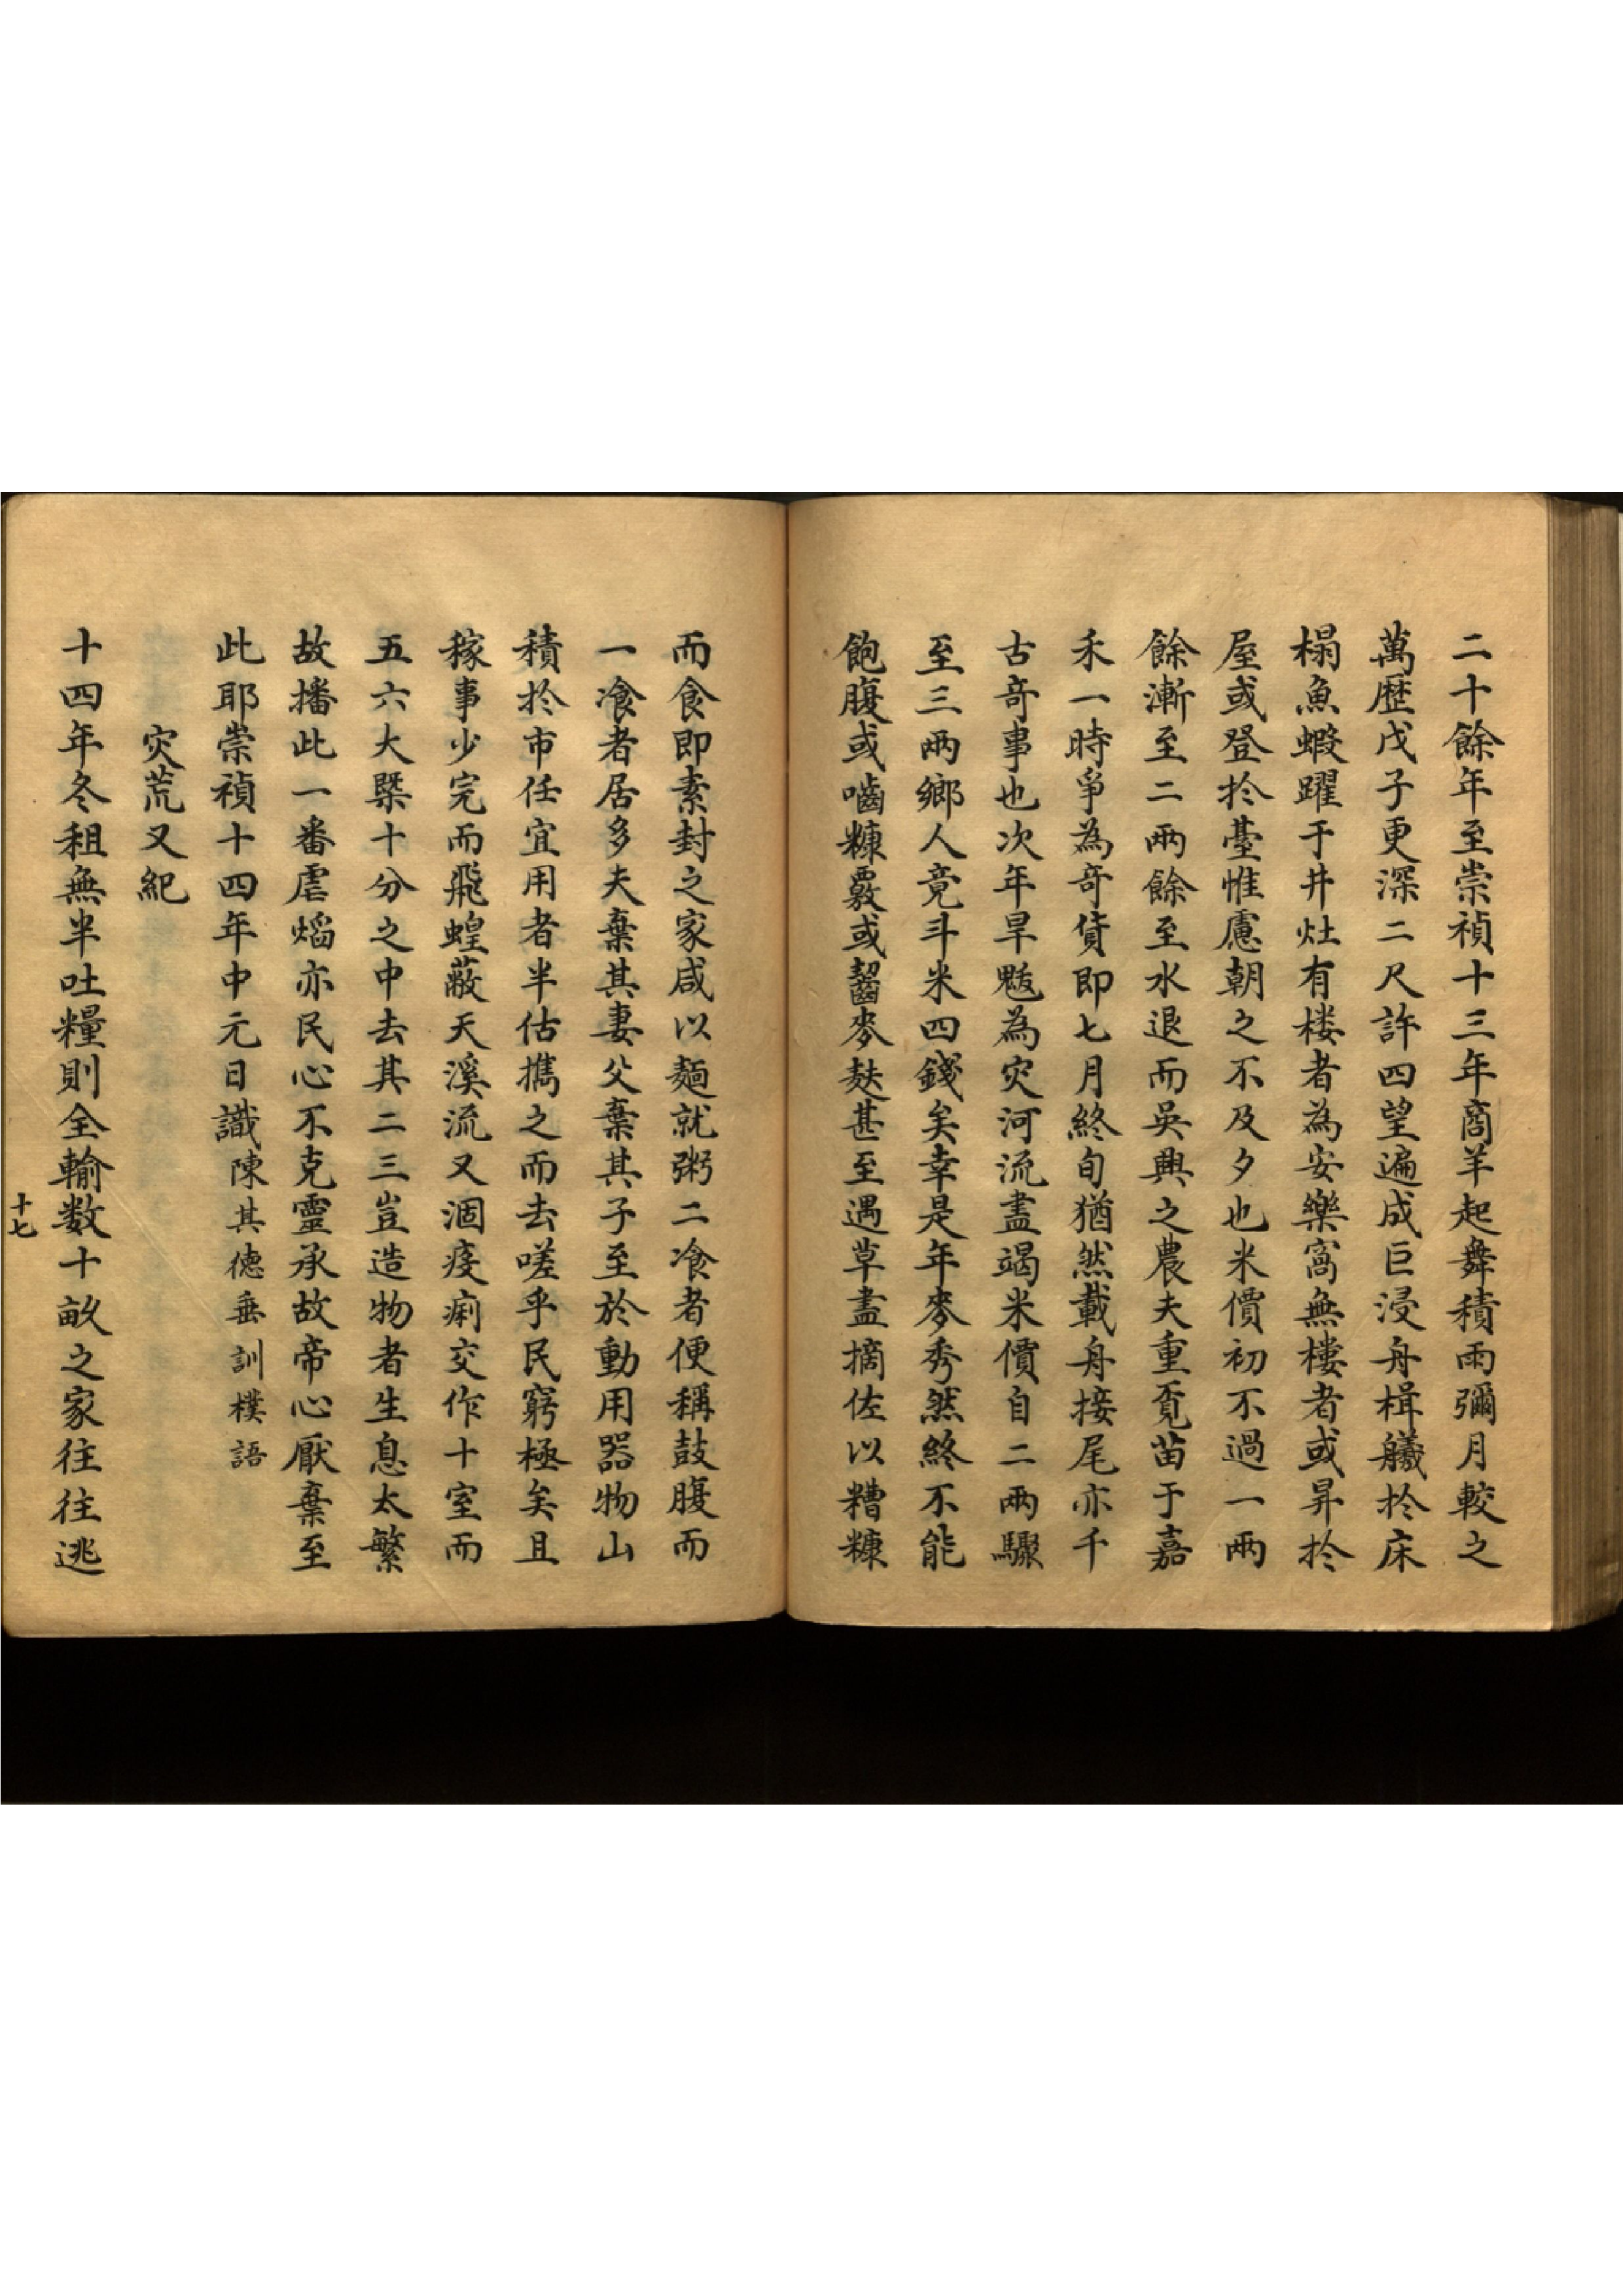 二十餘年至崇禎十三年商羊起舞積雨彌月較之
萬歷戊子更深二尺許四望遍成巨浸舟楫艤扵床
榻魚蝦躍于井灶有楼者為安樂窩無樓者或昇扵
屋或登扵臺惟慮朝之不及夕也米價初不過一兩
餘漸至二兩餘至水退而吳興之農夫重覔苗于嘉
禾一時爭為竒貨即七月終旬猶然載舟接尾亦千
古竒事也次年旱魃為灾河流盡竭米價自二兩驟
至三兩鄉人竟斗米四錢矣幸是年麥秀然終不能
飽腹或嚙糠覈或齧麥麸甚至遇草盡摘佐以糟糠
而食即素封之家咸以麵就粥二飡者便稱鼓腹而
一飡者居多夫棄其妻父棄其子至於動用器物山
積扵市任宜用者半估擕之而去嗟乎民窮極矣且
稼事少完而飛蝗蔽天溪流又涸疫痢交作十室而
五六大槩十分之中去其二三豈造物者生息太繁
故播此一番虐熖亦民心不克靈承故帝心厭棄至
此耶崇禎十四年中元日識陳其德垂訓樸語
灾荒又紀
十四年冬租無半吐糧則全輸数十畝之家往往逃
十七